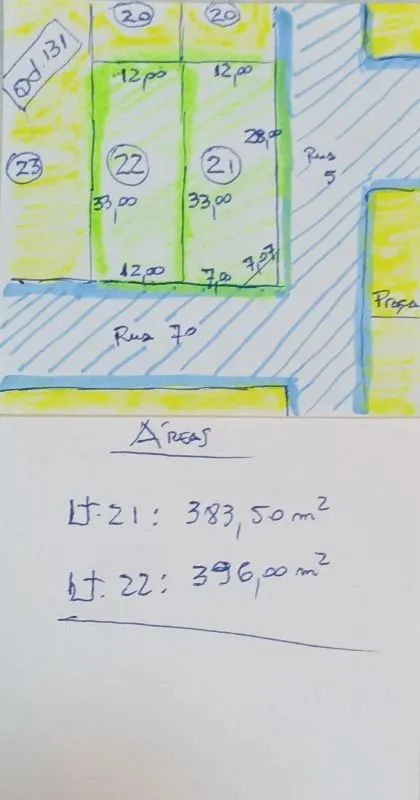 20 20
Qd.131
12,00 12,00
28,00
23 22 21
Rua
5
33,00 33,00
12,00 7,00 7,07
Praça
Rua 70
ÁREAS
Lt. 21: 383,50 m²
Lt. 22: 396,00 m²